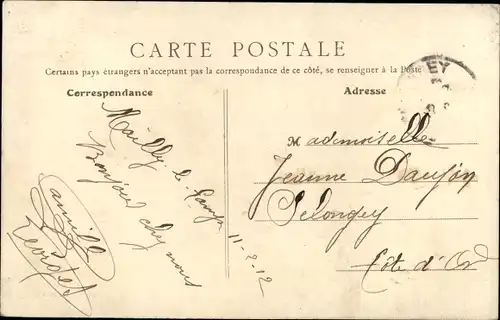 CARTE POSTALE
Certains pays étrangers n'acceptant pas la correspondance de ce côté, se renseigner à la Poste
Correspondance
Adresse
EY
Mailly le Camp
Bonjour chez vous
Famille
11-2-12
Mademoiselle
Jeanne
Selongey
Côte d'Or